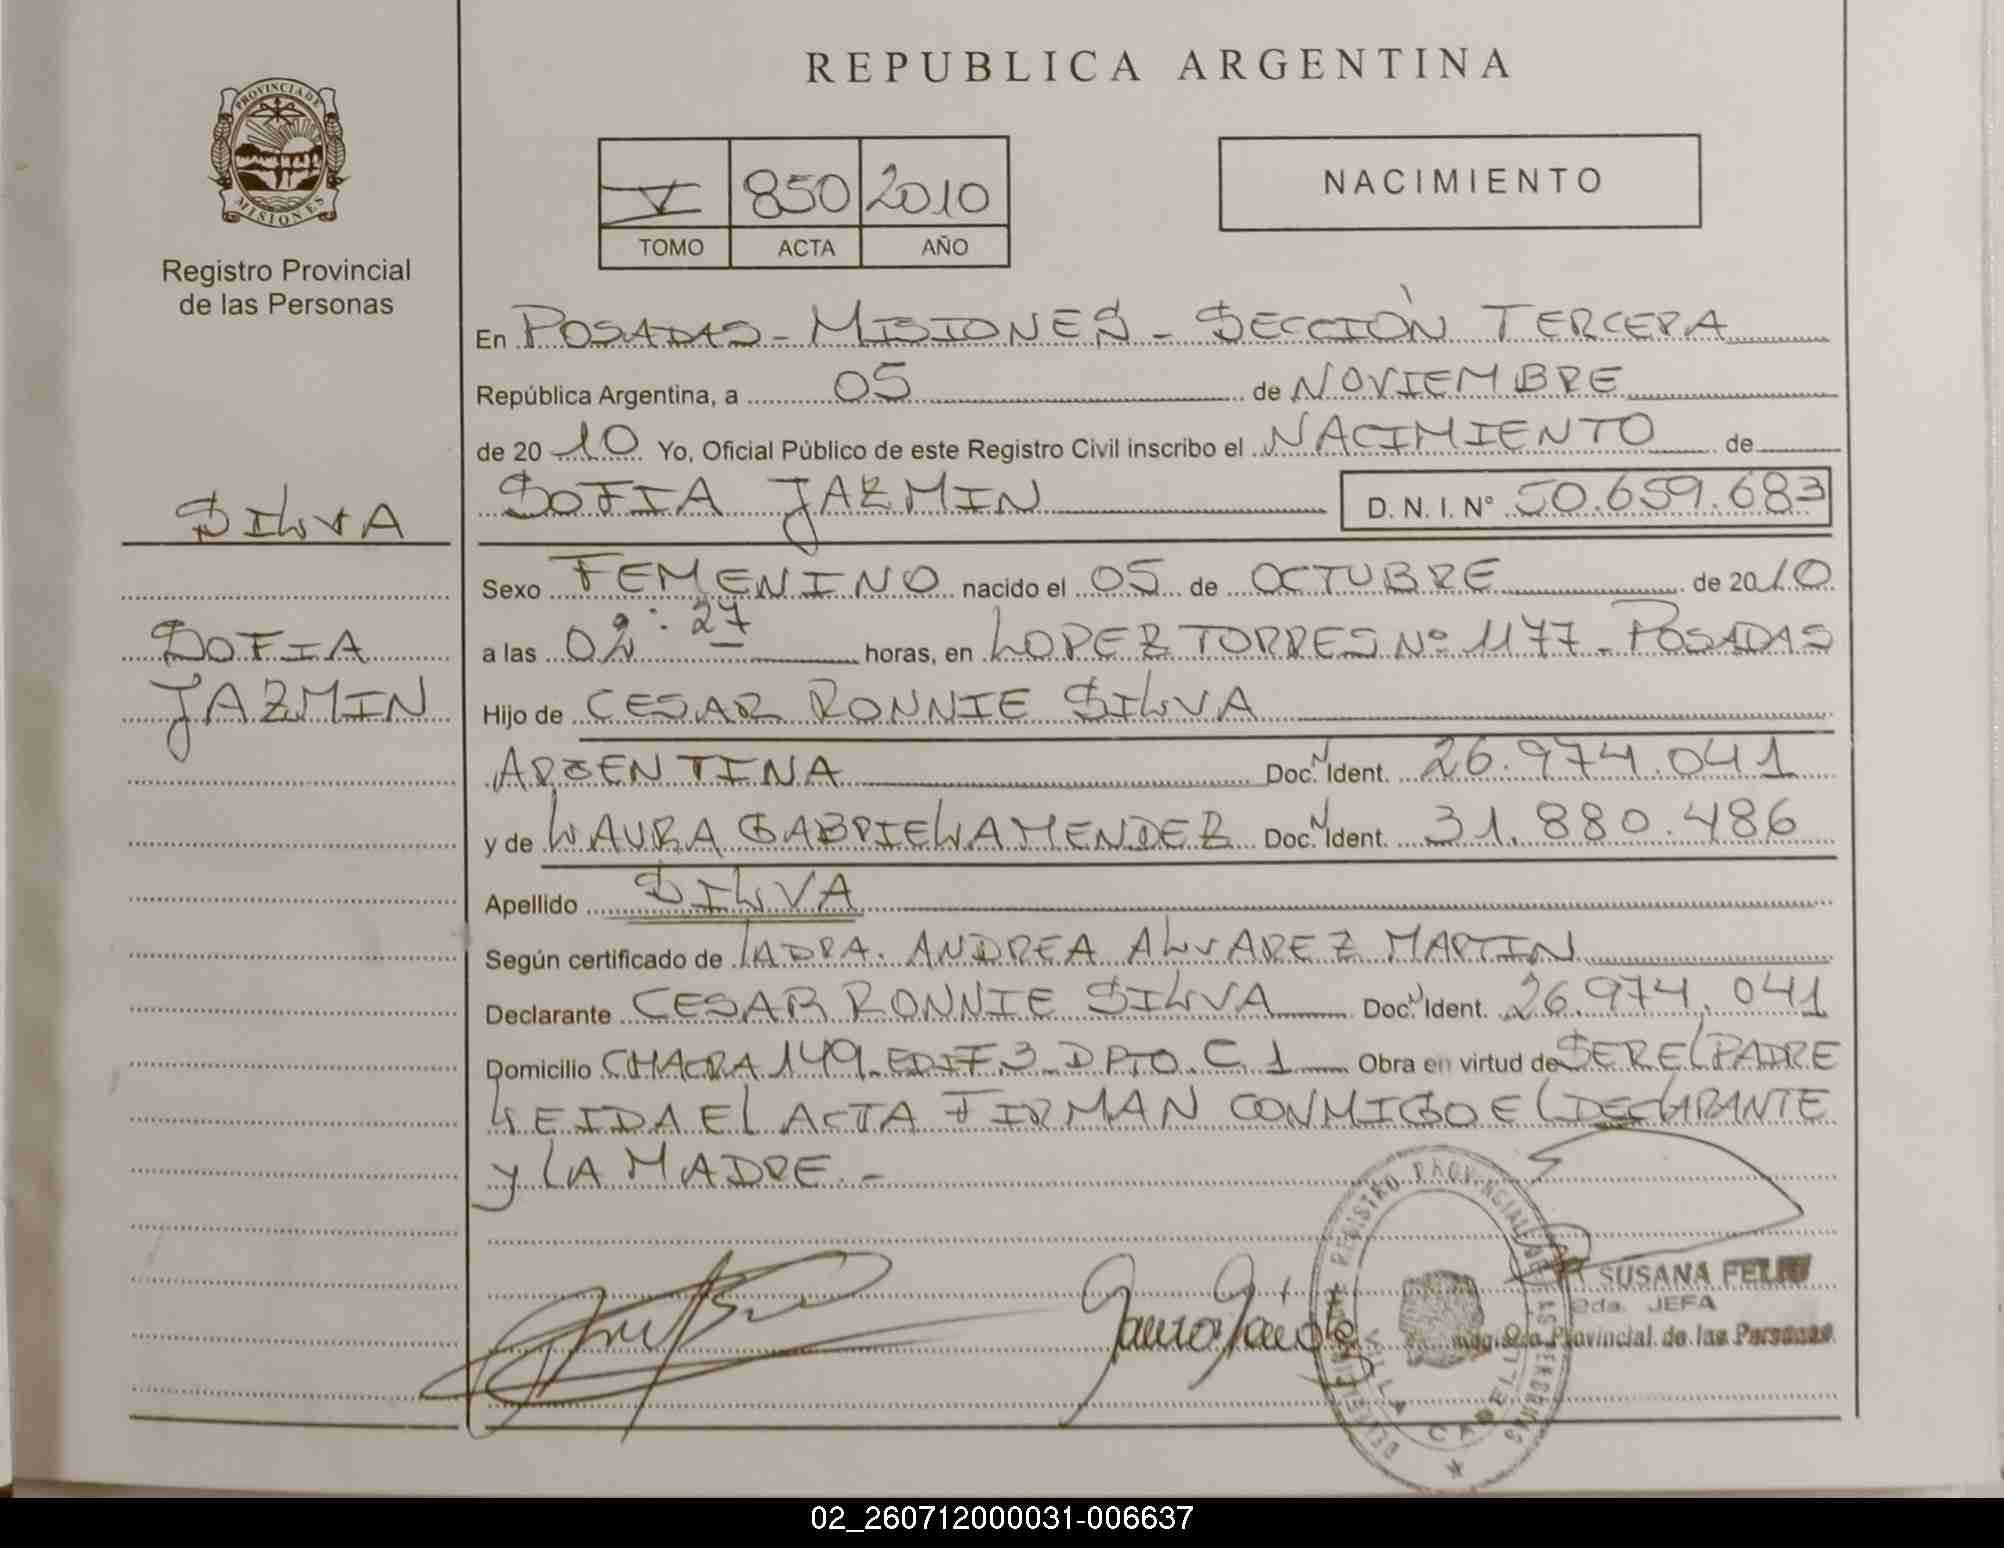 REPUBLICA ARGENTINA
PROVINCIA DE
MISIONES
Registro Provincial
de las Personas
V 850 2010
TOMO ACTA AÑO
NACIMIENTO
En POSADAS - MISIONES - SECCIÓN TERCERA
República Argentina, a 05 de NOVIEMBRE
de 2010 Yo, Oficial Público de este Registro Civil inscribo el NACIMIENTO de
SOFIA JAZMIN D. N. I. N° 50.659.683
SILVA
SOFIA
JAZMIN
Sexo FEMENINO nacido el 05 de OCTUBRE de 2010
a las 02:27 horas, en LOPEZ TORRES Nº 1177 - POSADAS
Hijo de CESAR RONNIE SILVA
ARGENTINA Doc. N Ident. 26.974.041
y de LAURA GABRIELA MENDEZ Doc. N Ident. 31.880.486
Apellido SILVA
Según certificado de LA DRA. ANDREA ALVAREZ MARTIN
Declarante CESAR RONNIE SILVA Doc. N Ident. 26.974.041
Domicilio CHACRA 149 - EDIF 3 - DPTO. C 1 Obra en virtud de SER EL PADRE
LEIDA EL ACTA FIRMAN CONMIGO EL DECLARANTE
y LA MADRE. -
REGISTRO PROVINCIAL DE LAS PERSONAS
VILLA CABELLO
SUSANA FELIU
2da. JEFA
Registro Provincial de las Personas
02_260712000031-006637